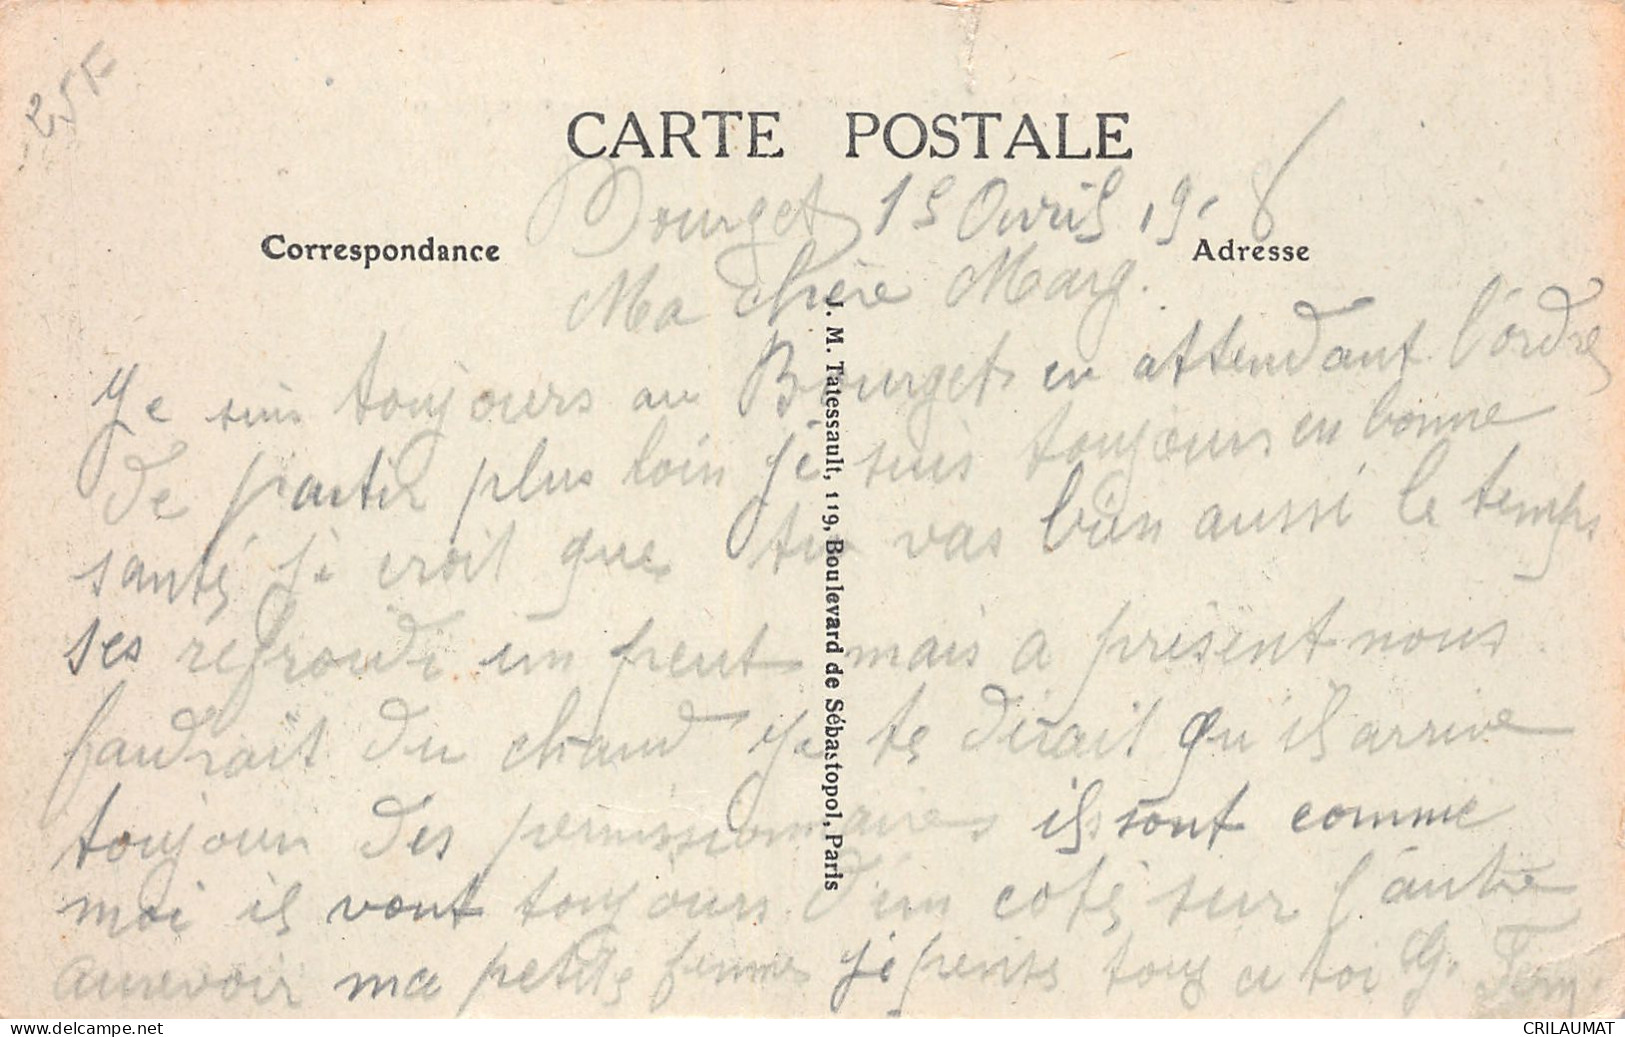 25F
CARTE POSTALE
Bourget 15 Avril 19 8
Correspondance
Adresse
Ma chère Marg.
Je suis toujours au Bourget en attendant l'ordre
de partir plus loin je suis toujours en bonne
santé je croit que tu vas bien aussi le temps
ses refroidi un peut mais a présent nous
faudrait du chaud Je te dirait qu'il arrive
toujour des permissionnaires ils sont comme
moi il vont toujours d'un coté sur l'autre
aurevoir ma petite femme je pense tous a toi G.
J. M. Tatessault, 119, Boulevard de Sébastopol, Paris
CRILAUMAT
www.delcampe.net